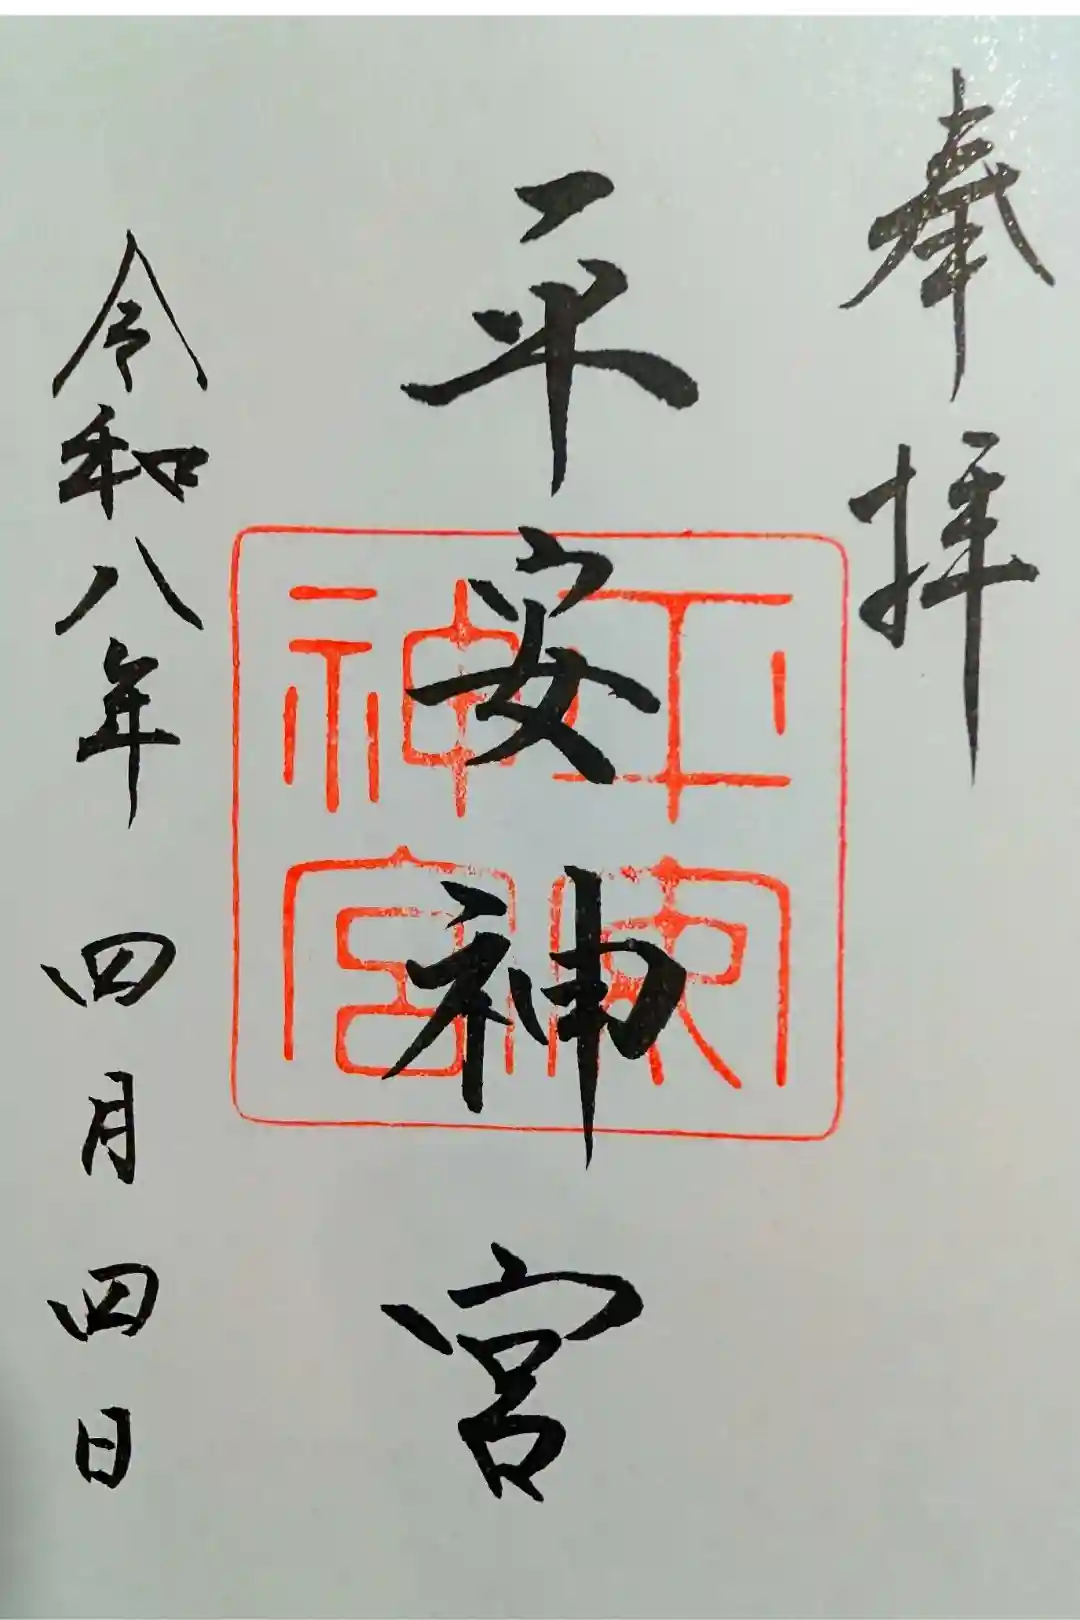 奉拝
平安神宮
平安神宮
令和八年四月四日